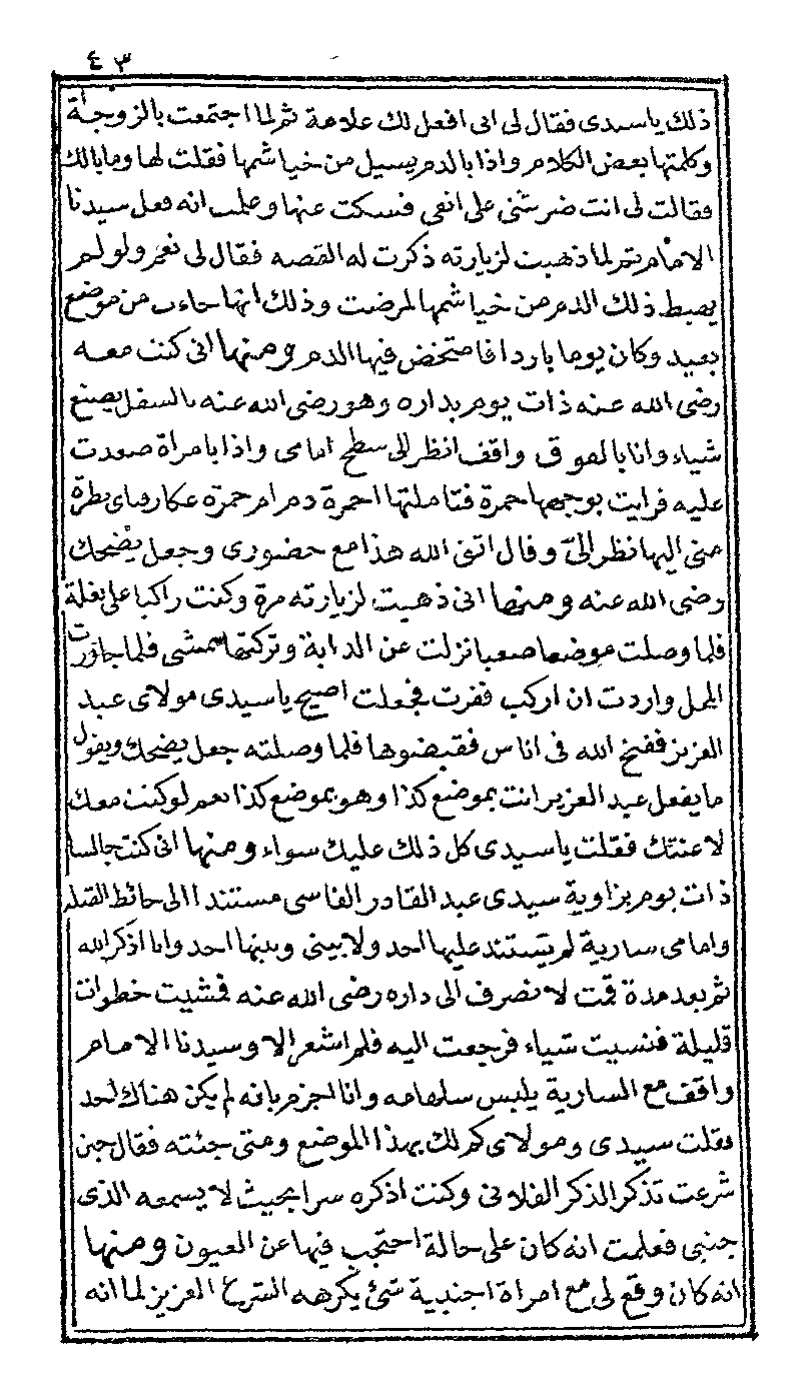 ٤٣
ذلك ياسيدى فقال لى انى افعل لك علامة ثم لما اجتمعت بالزوجة
وكلمتها بعض الكلام واذا بالدم يسيل من خياشمها فقلت لها ومابالك
فقالت لى انت ضربتنى على انفى فسكت عنها وعلمت انه فعل سيدنا
الامام ثم لما ذهبت لزيارته ذكرت له القصه فقال لى نعم ولو لم
يهبط ذلك الدم من خياشمها لمرضت وذلك انها جاءت من موضع
بعيد وكان يوما باردا فامتخض فيها الدم ومنها انى كنت معه
رضى الله عنه ذات يوم بداره وهو رضى الله عنه بالسفل يصنع
شياء وانا بالفوق واقف انظر الى سطح امامى واذا بامراة صعدت
عليه فرايت بوجهها حمرة فتاملتها احمرة دم ام حمرة عكار فباى نظرة
منى اليها نظر الىّ وقال اتق الله هذا مع حضورى وجعل يضحك
رضى الله عنه ومنها انى ذهبت لزيارته مرة وكنت راكبا على بغلة
فلما وصلت موضعا صعبا نزلت عن الدابة وتركتها تمشى فلما جاوزت
المحل واردت ان اركب نفرت فجعلت اصيح ياسيدى مولاى عبد
العزيز ففتح الله فى اناس فقبضوها فلما وصلته جعل يضحك ويقول
مايفعل عبد العزيز انت بموضع كذا وهو بموضع كذا نعم لوكنت معك
لاعنتك فقلت ياسيدى كل ذلك عليك سواء ومنها انى كنت جالسا
ذات يوم بزاوية سيدى عبد القادر الفاسى مستندا الى حائط القبلة
وامامى سارية لم يستند عليها احد ولا بينى وبينها احد وانا اذكر الله
ثم بعد مدة قمت لانصرف الى داره رضى الله عنه فمشيت خطوات
قليلة فنسيت شياء فرجعت اليه فلم اشعر الا وسيدنا الامام
واقف مع السارية يلبس سلهامه وانا اجزم بانه لم يكن هناك احد
فقلت سيدى ومولاى كم لك بهذا الموضع ومتى جئته فقال حين
شرعت تذكر الذكر الفلانى وكنت اذكره سرا بحيث لا يسمعه الذى
جنبى فعلمت انه كان على حالة احتجب فيها عن العيون ومنها
انه كان وقع لى مع امراة اجنبية شئ يكرهه الشرع العزيز لما انه